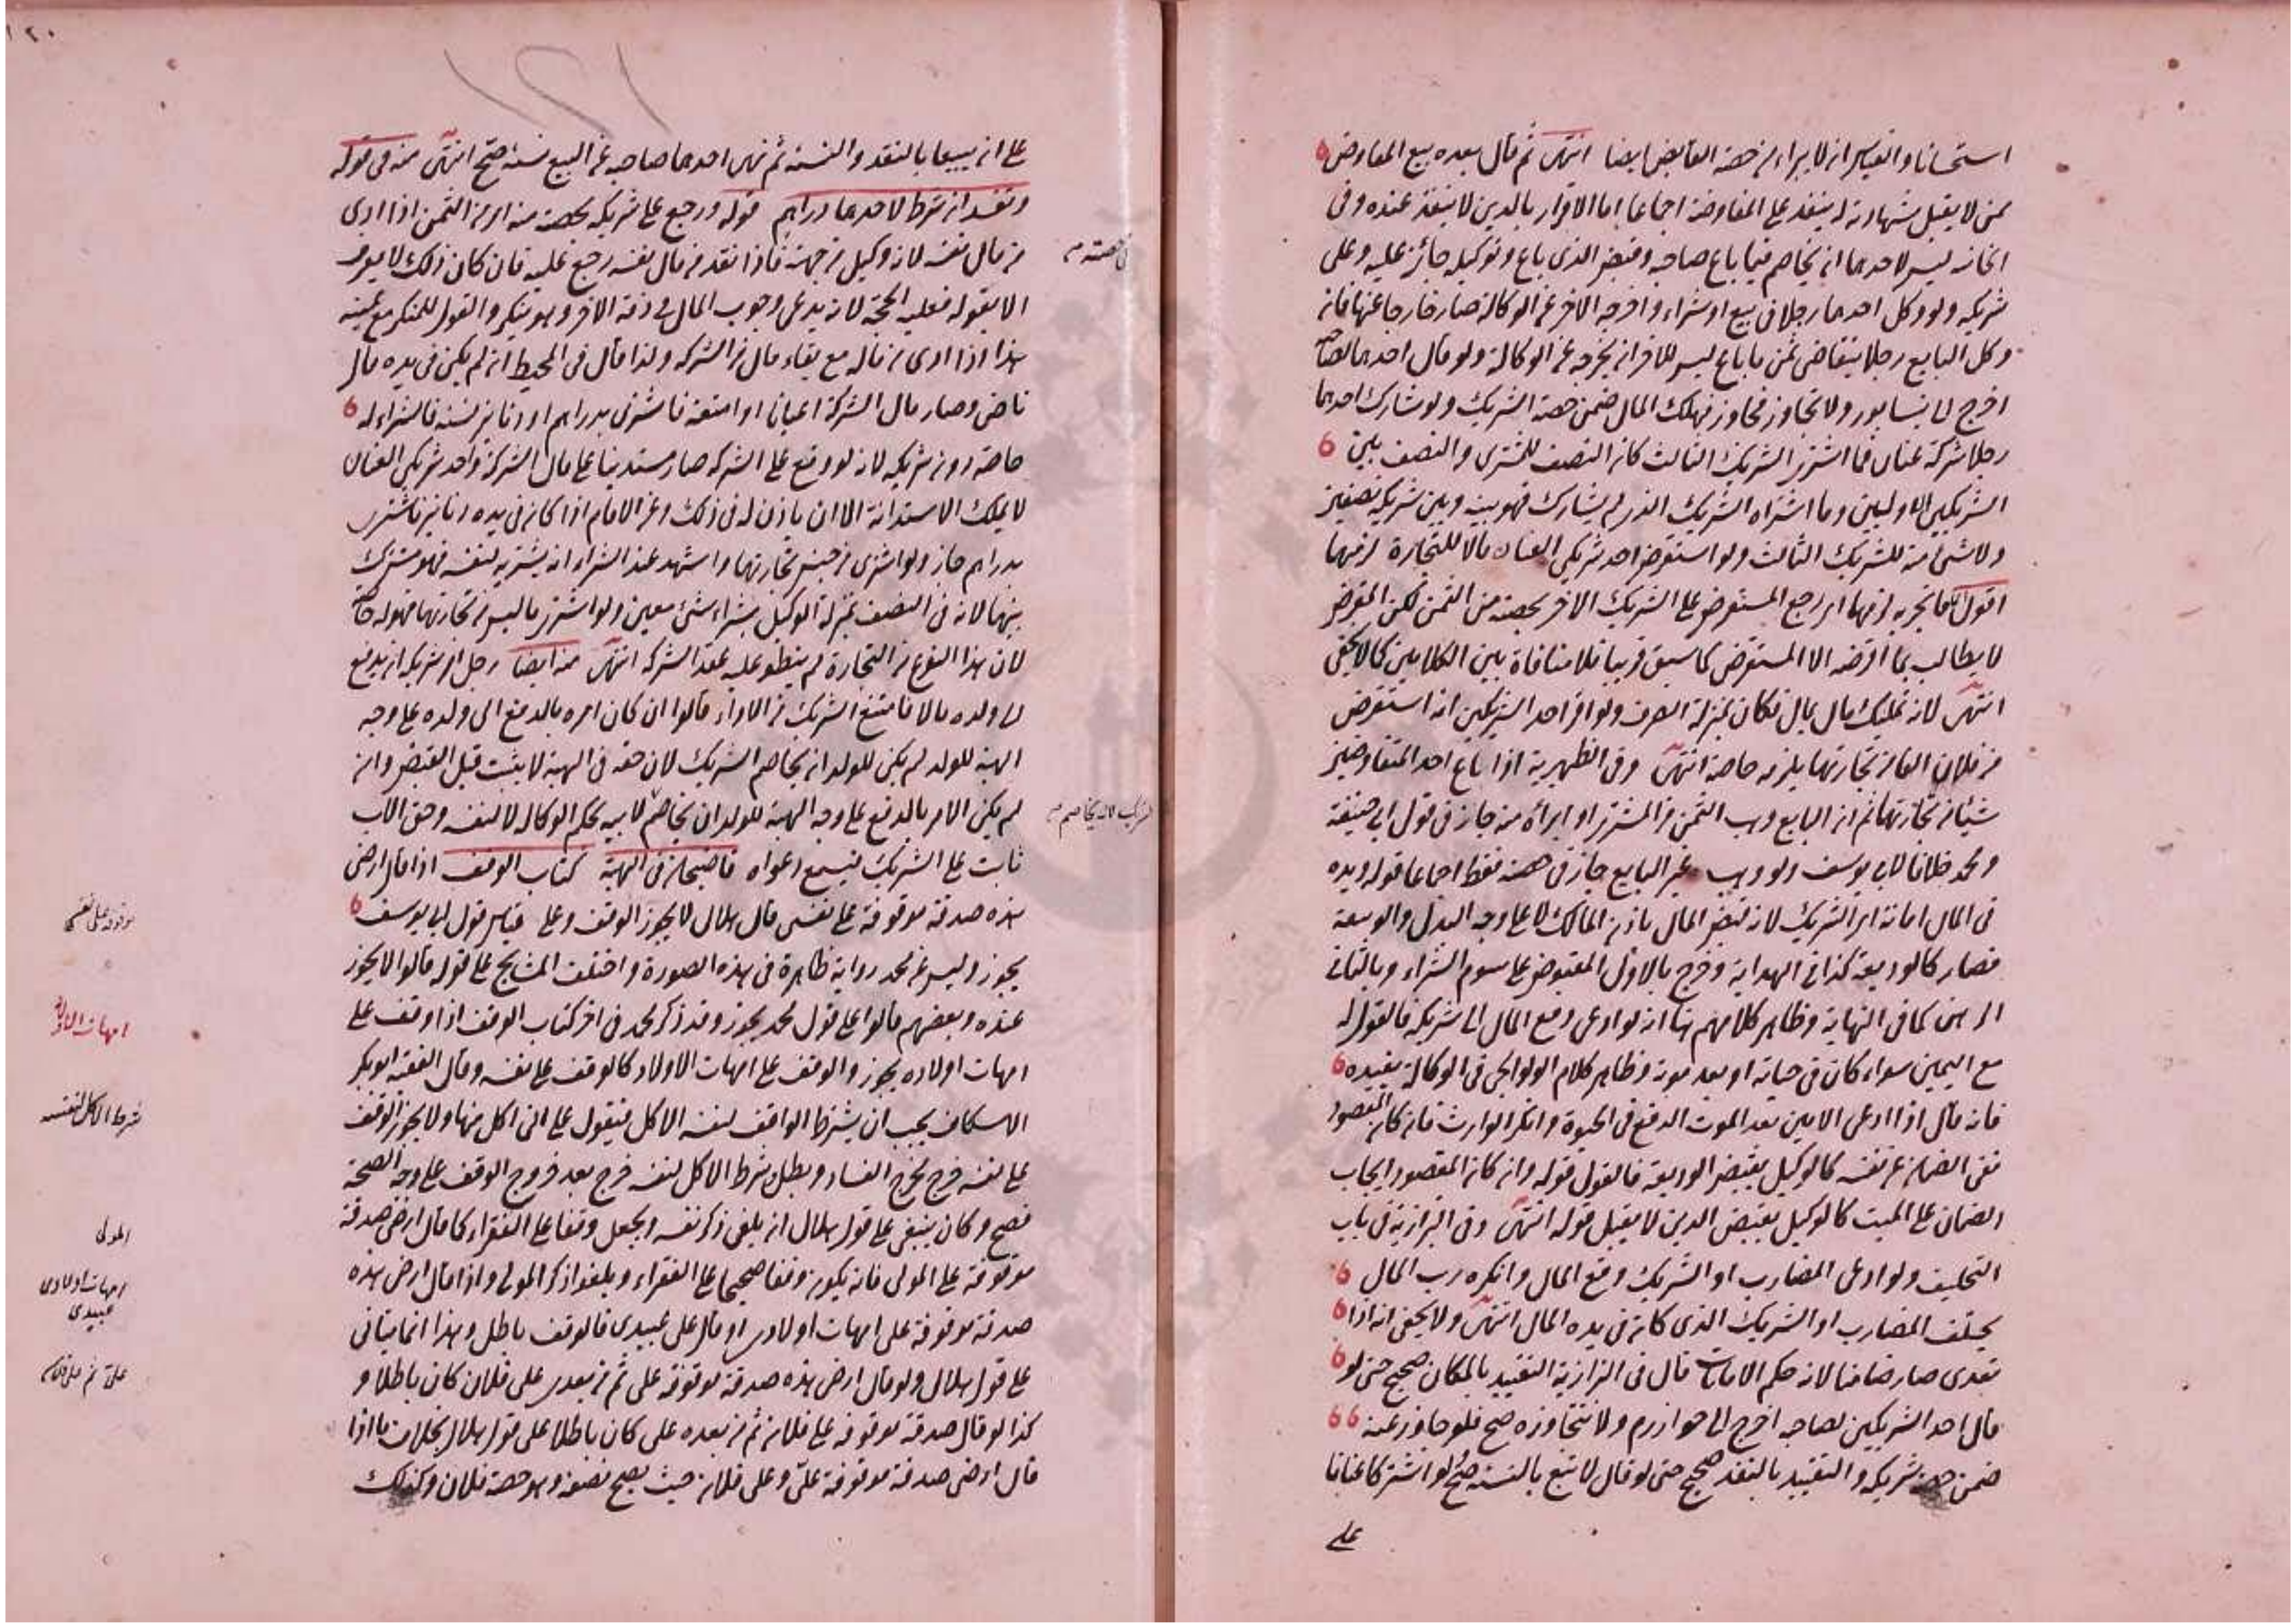 استحسانا والقياس ان لا يبراء من حصة القابض ايضا انتهى ثم قال بعده بيع المفاوض
ممن لا يقبل شهادته له ينفذ على المفاوضة اجماعا اما الاقرار بالدين لا ينفذ عنده وفى
الخانية ليس لاحدهما ان يخاصم فيما باع صاحبه وقبض الذى باع وتوكيله جائز عليه وعلى
شريكه ولو وكل احدهما رجلا فى بيع او شراء واخرجه الاخر عن الوكالة صار خارجا عنها فان
وكل البايع رجلا بتقاضى ثمن ما باع ليس للاخر ان يخرجه عن الوكالة ولو قال احدهما لصاحبه
اخرج الى نيسابور ولا تجاوز فجاوز فهلك المال ضمن حصة الشريك ولو شارك احدهما
رجلا شركة عنان فما اشترى الشريك الثالث كان النصف للمشترى والنصف بين
الشريكين الاوليين وما اشتراه الشريك الذى لم يشارك فهو بينه وبين شريكه نصفين
ولا شئ منه للشريك الثالث ولو استقرض احد شريكى العنان مالا للتجارة لزمهما
اقول معنى لزمهما اى رجع المستقرض على الشريك الاخر بحصته من الثمن لكن المقرض
لا يطالب بما اقرضه الا المستقرض كما سبق قريبا فلا منافاة بين الكلامين كما لا يخفى
انتهى لانه تمليك مال بمال فكان بمنزلة الصرف ولو اقر احد الشريكين انه استقرض
من فلان الفا من تجارتهما يلزمه خاصة انتهى وفى الظهيرية اذا باع احد المتفاوضين
شيئا من تجارتهما ثم ان البايع وهب الثمن من المشترى او ابراه منه جاز فى قول ابى حنيفة
ومحمد خلافا لابى يوسف ولو وهب غير البايع جاز فى حصته فقط اجماعا قوله ويده
فى المال امانة اى الشريك لانه قبض المال باذن المالك لا على وجه البدل والوسيقة
فصار كالوديعة كذا فى الهداية وخرج بالاول المقبوض على سوم الشراء وبالثانى
الرهن كما فى النهاية وظاهر كلامهم هنا انه لو ادعى دفع المال الى شريكه فالقول له
مع اليمين سواء كان فى حياته او بعد موته وظاهر كلام الولوالجى فى الوكالة يفيده
فانه قال اذا ادعى الامين بعد الموت الدفع فى الحيوة وانكر الوارث فان كان المقصود
نفى الضمان عن نفسه كالوكيل بقبض الوديعة فالقول قوله وان كان المقصود ايجاب
الضمان على الميت كالوكيل بقبض الدين لا يقبل قوله انتهى وفى البزازية فى باب
التحليف ولو ادعى المضارب او الشريك دفع المال وانكره رب المال
يحلف المضارب او الشريك الذى كان فى يده المال انتهى ولا يخفى انه اذا
تعدى صار ضامنا لانه حكم الامانات قال فى البزازية التقييد بالمكان صحيح حتى لو
قال احد الشريكين لصاحبه اخرج الى خوارزم ولا تتجاوزه صح فلو جاوز عنه
ضمن حصة شريكه والتقييد بالنقد صحيح حتى لو قال لا تبع بالنسئة صح لو اشتركا عنانا
على
على ان يبيعا بالنقد والنسئة ثم نهى احدهما صاحبه عن البيع نسئة صح انتهى منه فى قوله
وتفسد ان شرط لاحدهما دراهم قوله ورجع على شريكه بحصته منه اى من الثمن اذا ادى
من مال نفسه لانه وكيل من جهته فاذا نقد من مال نفسه رجع عليه فان كان ذلك لا يعرف
الا بقوله فعليه الحجة لانه يدعى وجوب المال فى ذمة الاخر وهو ينكر والقول للمنكر مع يمينه
هذا اذا ادى من ماله مع بقاء مال من الشركة ولذا قال فى المحيط ان لم يكن فى يده مال
ناض وصار مال الشركة اعيانا او امتعة فاشترى بدراهم او دنانير نسئة فالشراء له
خاصة دون شريكه لانه لو وقع على الشركة صار مستدينا على مال الشركة واحد شريكى العنان
لا يملك الاستدانة الا ان ياذن له فى ذلك وعن الامام اذا كان فى يده دنانير فاشترى
بدراهم جاز ولو اشترى من جنس تجارتهما واشهد عند الشراء انه يشتريه لنفسه فهو مشترك
بينهما لانه فى النصف بمنزلة الوكيل بشراء شئ معين ولو اشترى ما ليس من تجارتهما فهو له خاصة
لان هذا النوع من التجارة لم ينطو عليه عقد الشركة انتهى منه ايضا رجل امر شريكه ان يدفع
الى ولده مالا فامتنع الشريك من الاداء قالوا ان كان امره بالدفع الى ولده على وجه
الهبة للولد لم يكن للولد ان يخاصم الشريك لان حقه فى الهبة لا يثبت قبل القبض وان
لم يكن الامر بالدفع على وجه الهبة للولد ان يخاصم لابيه بحكم الوكالة لا لنفسه وحق الاب
ثابت على الشريك فيسمع دعواه قاضيخان فى الهبة كتاب الوقف اذا قال ارضى
هذه صدقة موقوفة على نفسى قال هلال لا يجوز الوقف وعلى قياس قول ابى يوسف
يجوز وليس عن محمد رواية ظاهرة فى هذه الصورة واختلف المشايخ على قوله قالوا لا يجوز
عنده وبعضهم قالوا على قول محمد يجوز وقد ذكر محمد فى اخر كتاب الوقف اذا وقف على
امهات اولاده يجوز والوقف على امهات الاولاد كالوقف على نفسه وقال الفقيه ابو بكر
الاسكاف يجب ان يشترط الواقف لنفسه الاكل فيقول على انى اكل منها ولا يجوز الوقف
على نفسه خرج مخرج الفساد ويبطل شرط الاكل لنفسه خرج بعد خروج الوقف على وجه الصحة
فصح وكان ينبغى على قول هلال ان يلغى ذكر نفسه ويجعل وقفا على الفقراء كما قال ارضى صدقة
موقوفة على المولى فانه يكون وقفا صحيحا على الفقراء ويلغو ذكر المولى واذا قال ارضى هذه
صدقة موقوفة على امهات اولادى او قال على عبيدى فالوقف باطل وهذا انما يتاتى
على قول هلال ولو قال ارضى هذه صدقة موقوفة على ثم من بعدى على فلان كان باطلا و
كذا لو قال صدقة موقوفة على فلان ثم من بعده على كان باطلا على قول هلال بخلاف ما اذا
قال ارضى صدقة موقوفة على وعلى فلان حيث يصح نصفه وهو حصة فلان وكذلك
موقوفة على نفسى
امهات الاولاد
شرط الاكل لنفسه
المولى
امهات اولادى
عبيدى
على ثم على فلان